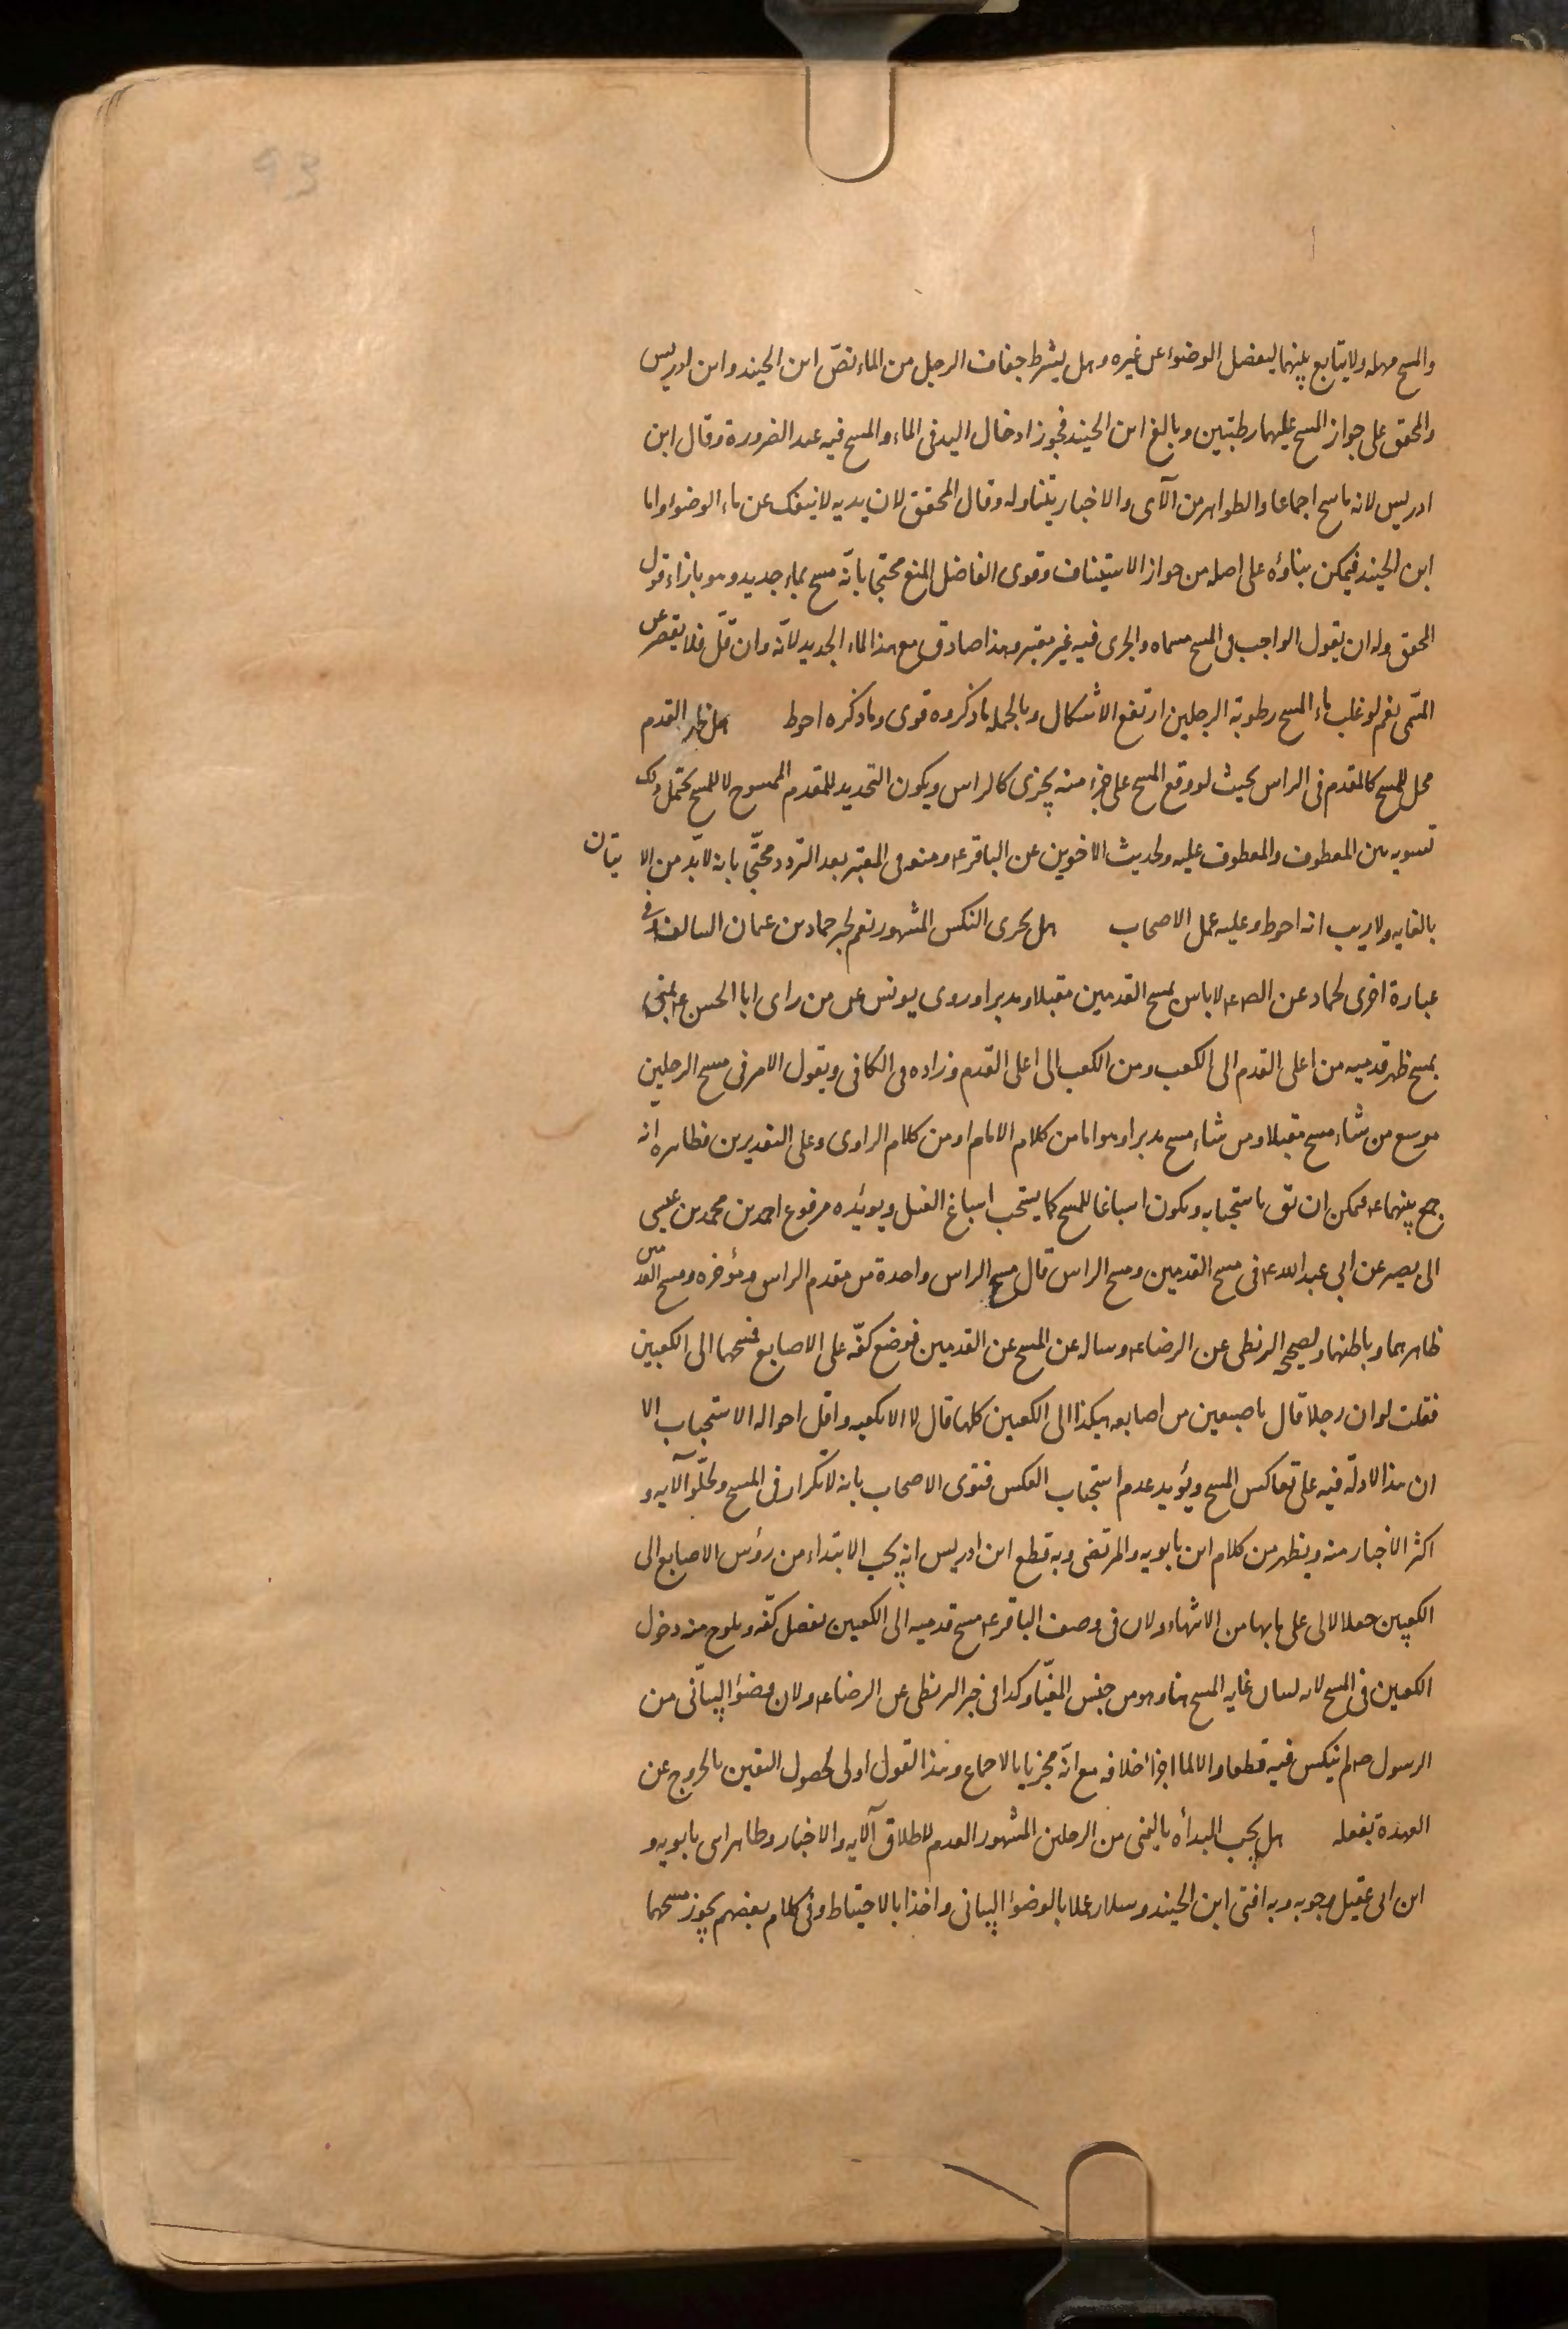 93
والمسح مهله ولا يتابع بينهما ليفصل الوضوء عن غيره وهل يشترط جفاف الرجل من الماء نصّ ابن الجنيد وابن ادريس
والمحقق على جواز المسح عليهما رطبتين وبالغ ابن الجنيد فجوز ادخال اليد في الماء والمسح فيه عند الضرورة وقال ابن
ادريس لانه ماسح اجماعا والظواهر من الآى والاخبار يتناوله وقال المحقق لان يديه لا ينفك عن ماء الوضوء واما
ابن الجنيد فيمكن بناؤه على اصله من جواز الاستيناف وقوى الفاضل المنع محتجا بانّه مسح بماء جديد وهو بازاء قول
المحقق وله ان يقول الواجب في المسح مسماه والجرى فيه غير معتبر وهذا صادق مع هذا الماء الجديد لانّه وان قلّ فلا يقصر عن
المسمى نعم لو غلب ماء المسح رطوبة الرجلين ارتفع الاشكال وبالجمله ما ذكروه قوى وما ذكره احوط هل ظهر القدم
محل للمسح كالمقدم في الراس بحيث لو وقع المسح على جزء منه يجزى كالراس ويكون التحديد للمقدم الممسوح لا للمسح يحتمل ذلك
تسويه بين المعطوف والمعطوف عليه ولحديث الاخوين عن الباقر ع ومنعه في المعتبر بعد التردد محتجّا بانه لابّد من الا يتان
بالغايه ولا ريب انه احوط وعليه عمل الاصحاب هل يجرى النكس المشهور نعم لخبر حماد بن عمان السالف وفي
عبارة اخرى لحماد عن الصـ ع لا باس بمسح القدمين مقبلا ومدبرا وروى يونس عن من راى ابا الحسن ع بمنى
يمسح ظهر قدميه من اعلى القدم الى الكعب ومن الكعب الى اعلى القدم وزاده في الكافى ويقول الامر في مسح الرجلين
موسع من شاء مسح مقبلا ومن شاء مسح مدبرا وهو اما من كلام الامام او من كلام الراوى وعلى التقديرين فظاهره انّه
جمع بينهما ع فيمكن ان يق باستحبابه ويكون اسباغا للمسح كما يستحب اسباغ الغسل ويويّده مرفوع احمد بن محمد بن عيسى
الى بصير عن ابي عبد الله ع في مسح القدمين ومسح الراس قال مسح الراس واحدة من مقدم الراس ومؤخره ومسح القدمين
ظاهرهما وباطنهما ولصحيح البزنطى عن الرضا ع وساله عن المسح عن القدمين فوضع كفّه على الاصابع فمسحهما الى الكعبين
فقلت لو ان رجلا قال باصبعين من اصابعه هكذا الى الكعبين كلها قال لا الا بكفيه واقل احواله الاستحباب الا
ان هذا لا دلّه فيه على تعاكس المسح ويؤيد عدم استحباب العكس فتوى الاصحاب بانه لا تكرار في المسح ولخلّو الآيه و
اكثر الاخبار منه ويظهر من كلام ابن بابويه والمرتضى وبه قطع ابن ادريس انه يجب الابتداء من رؤس الاصابع الى
الكعبين جعلا لالى على بابها من الانتهاء ولان في وصف الباقر ع مسح قدميه الى الكعبين بفضل كفّه ويلوح منه دخول
الكعبين في المسح لانه لبيان غايه المسح هنا وهو من جنس المغيّا وكذا في خبر البزنطى عن الرضا ع ولان وضوء البياّنى من
الرسول ص لم ينكس فيه قطعا والا لما اجزأ خلافه مع انّه مجز يا بالاجماع وهذا القول اولى لحصول اليقين بالخروج عن
العهدة بفعله هل يجب البدأه باليمنى من الرجلين المشهور العدم لاطلاق الآيه والاخبار وظاهر ابني بابويه و
ابن ابى عقيل وجوبه وبه افتى ابن الجنيد وسلار عملا بالوضوء البيانى واخذا بالاحتياط وفي كلام بعضهم يجوز مسحهما